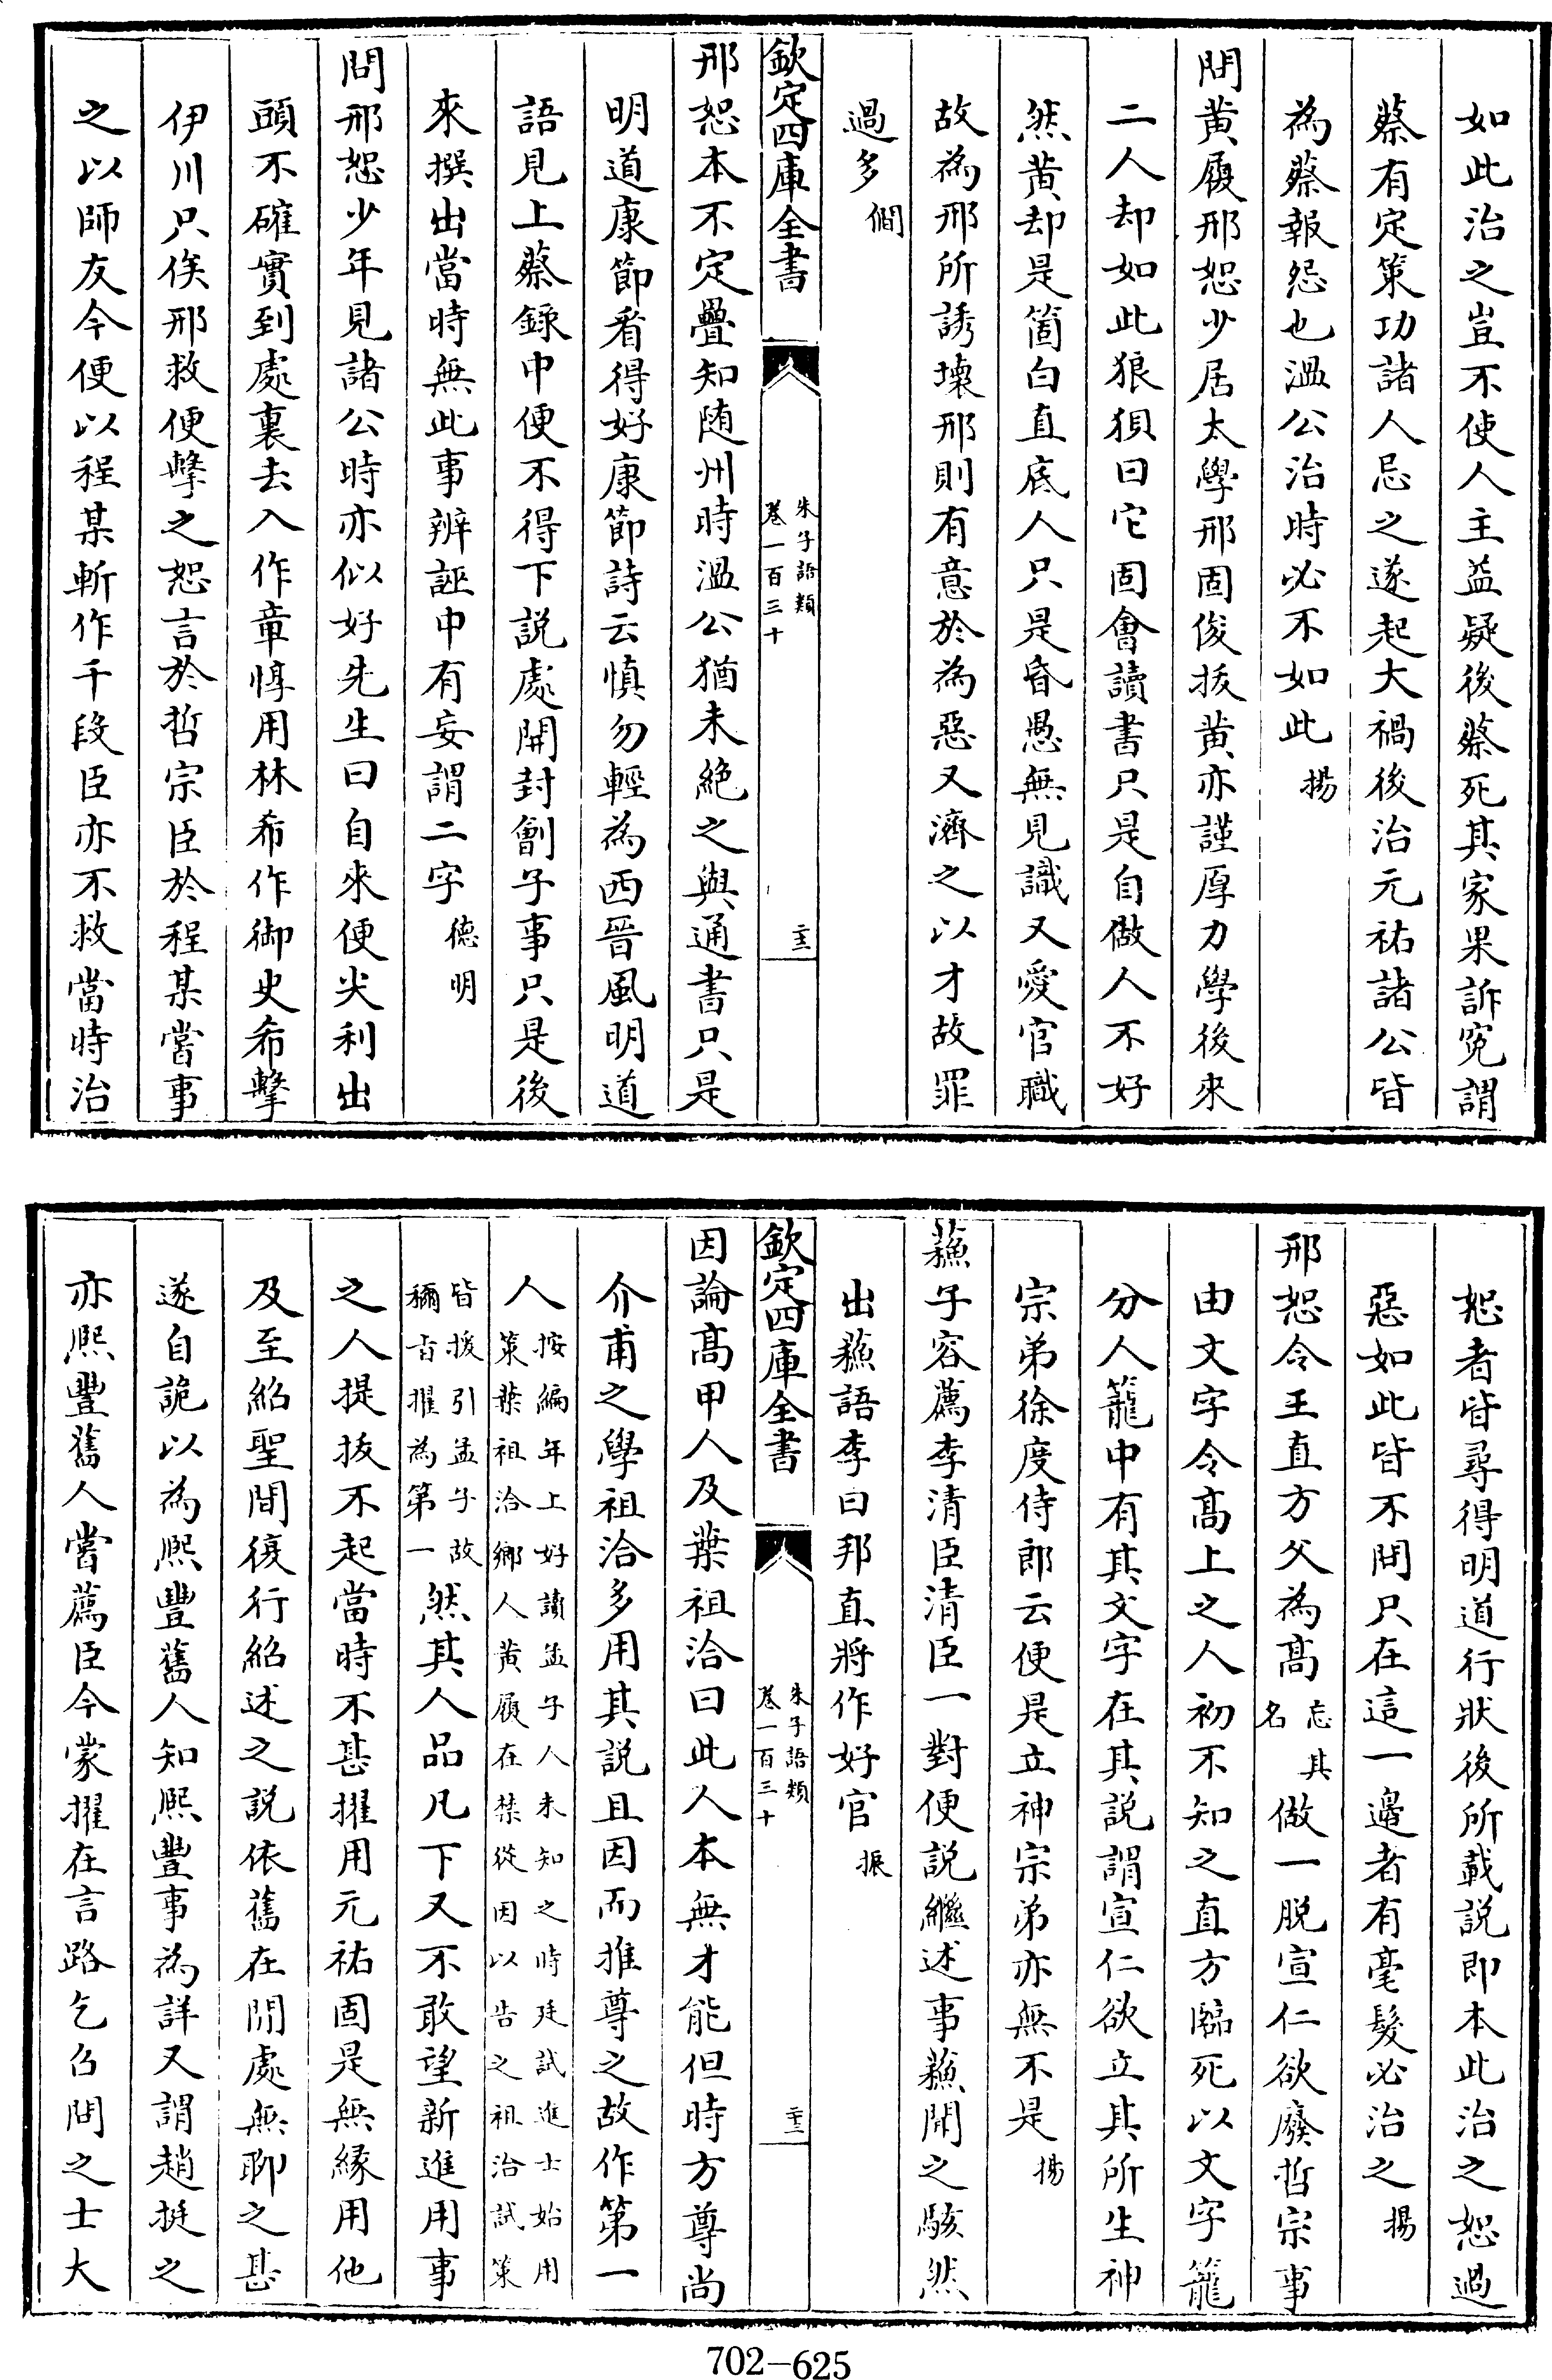 如此治之豈不使人主益疑後蔡死其家果訴寃謂
蔡有定策功諸人忌之遂起大禍後治元祐諸公皆
為蔡報怨也溫公治時必不如此揚
問黄履邢恕少居太學邢固俊拔黄亦謹厚力學後來
二人却如此狼狽曰它固會讀書只是自做人不好
然黄却是箇白直底人只是昏愚無見識又愛官職
故為邢所誘壞邢則有意於為惡又濟之以才故罪
過多僩
欽定四庫全書
朱子語類
卷一百三十
二十二
邢恕本不定疊知随州時溫公猶未絶之與通書只是
明道康節看得好康節詩云慎勿輕為西晉風明道
語見上蔡錄中便不得下説處開封劊子事只是後
來撰出當時無此事辨誣中有妄謂二字德明
問邢恕少年見諸公時亦似好先生曰自來便尖利出
頭不確實到處裏去入作章惇用林希作御史希擊
伊川只俟邢救便擊之恕言於哲宗臣於程某嘗事
之以師友今便以程某斬作千段臣亦不救當時治
恕者皆尋得明道行狀後所載説即本此治之恕過
惡如此皆不問只在這一邊者有毫髮必治之揚
邢恕令王直方父為髙忘其名做一脱宣仁欲廢哲宗事
由文字令髙上之人初不知之直方臨死以文字籠
分人籠中有其文字在其説謂宣仁欲立其所生神
宗弟徐度侍郎云便是立神宗弟亦無不是揚
蘓子容薦李清臣清臣一對便説繼述事蘓聞之駭然
出蘓語李曰邦直將作好官振
欽定四庫全書
朱子語類
卷一百三十
二十三
因論髙甲人及葉祖洽曰此人本無才能但時方尊尚
介甫之學祖洽多用其説且因而推尊之故作第一
人按編年上好讀孟子人未知之時廷試進士始用
策葉祖洽鄉人黄履在禁從因以告之祖洽試策
皆援引孟子故
稱旨擢為第一然其人品凡下又不敢望新進用事
之人提拔不起當時不甚擢用元祐固是無縁用他
及至紹聖間復行紹述之説依舊在閒處無聊之甚
遂自詭以為熙豐舊人知熙豐事為詳又謂趙挺之
亦熙豐舊人嘗薦臣今蒙擢在言路乞召問之士大
702—625